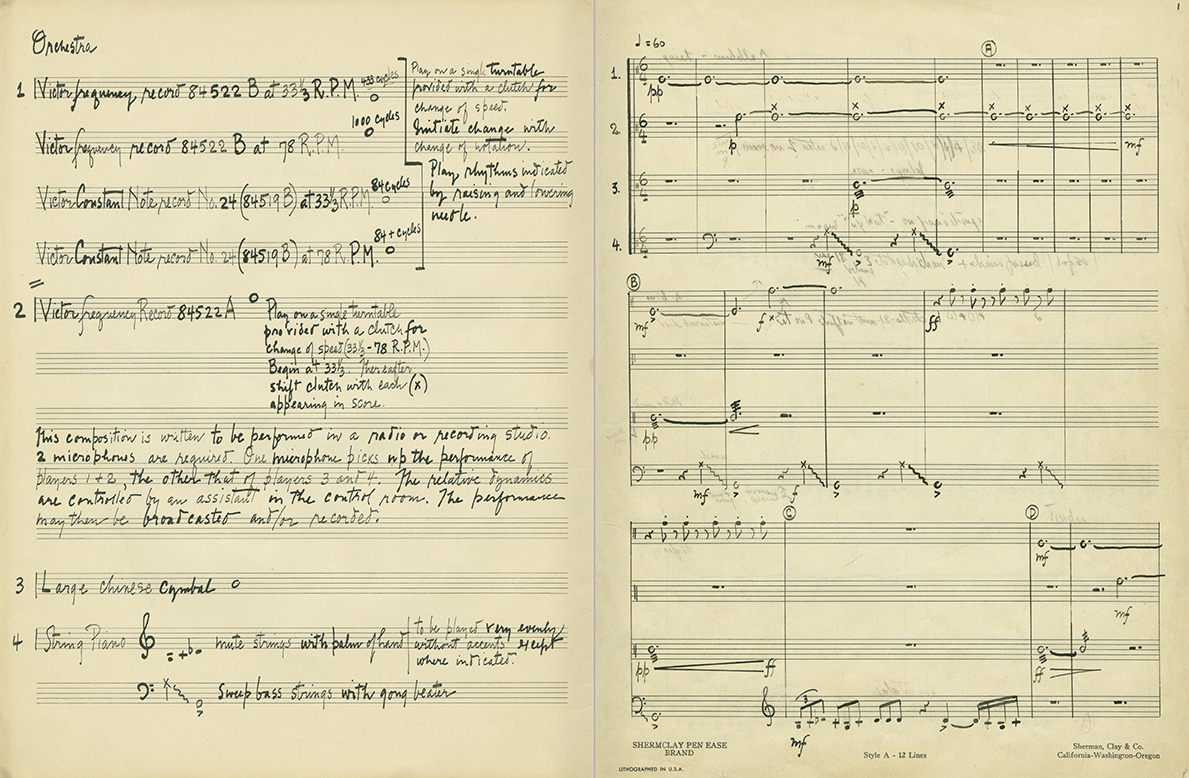 Orchestra
1 Victor frequency record 84522 B at 33⅓ R.P.M. 435 cycles
1000 cycles
Victor frequency record 84522 B at 78 R.P.M.
Play on a single turntable
provided with a clutch for
change of speed.
Initiate change with
change of notation.
Victor Constant Note record No. 24 (84519 B) at 33⅓ R.P.M 84 cycles
84 + cycles
Victor Constant Note record No. 24 (84519 B) at 78 R.P.M.
Play rhythms indicated
by raising and lowering
needle.
2 Victor frequency Record 84522 A
Play on a single turntable
provided with a clutch for
change of speed (33⅓ - 78 R.P.M.)
Begin at 33⅓. Thereafter
shift clutch with each (x)
appearing in score.
This composition is written to be performed in a radio or recording studio.
2 microphones are required. One microphone picks up the performance of
players 1 + 2, the other that of players 3 and 4. The relative dynamics
are controlled by an assistant in the control room. The performance
may then be broadcasted and/or recorded.
3 Large Chinese Cymbal
4 String Piano
mute strings with palm of hand
to be played very evenly
without accents except
where indicated.
Sweep bass strings with gong beater
1
♩ = 60
A
1.
pp
2.
p
mf
3.
p
4.
mf
B
mf
f
ff
pp
mf
f
mf
C
D
mf
mf
pp
ff
ff
3
mf
SHERMCLAY PEN EASE
BRAND
LITHOGRAPHED IN U.S.A.
Style A - 12 Lines
Sherman, Clay & Co.
California-Washington-Oregon